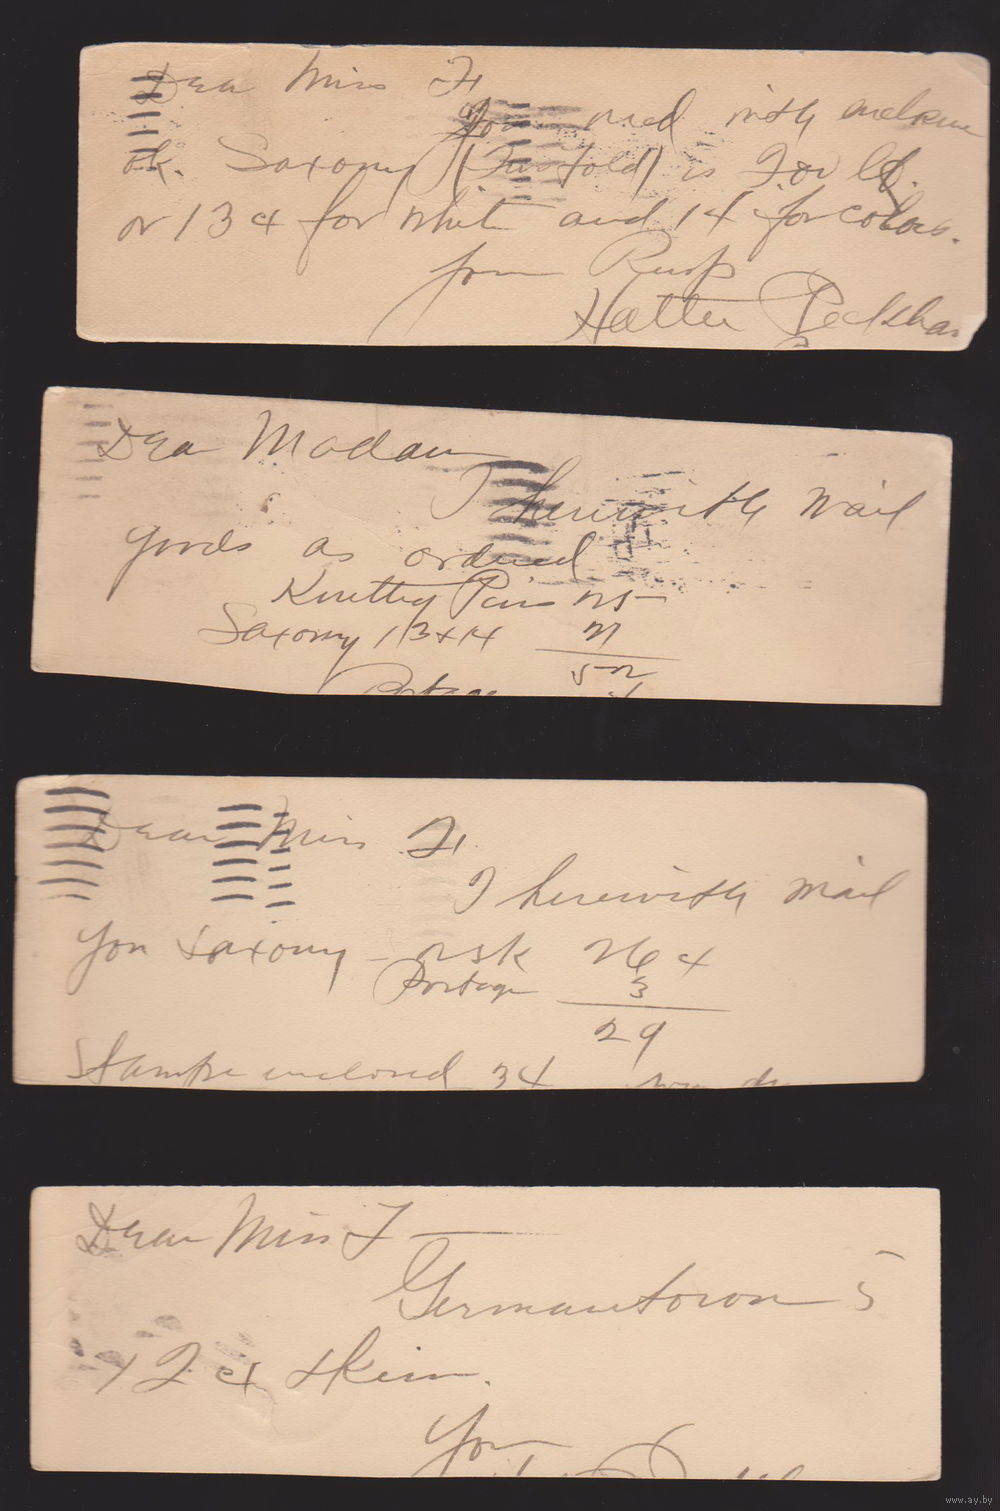 Dear Miss F
You need with enclosure
ok. Saxony (Twofold) is 2 oz
or 13¢ for white and 14 for colors.
your Resp
Hattie Peckham
Dear Madam
I herewith mail
goods as ordered
Knitting Pins 25
Saxony 13 + 14 27
52
Postage
Dear Miss F.
I herewith mail
you Saxony - 2 sk 26¢
Postage 3
29
Stamps enclosed 34
Dear Miss F
Germantown 5
12¢ skein.
Your
www.ay.by